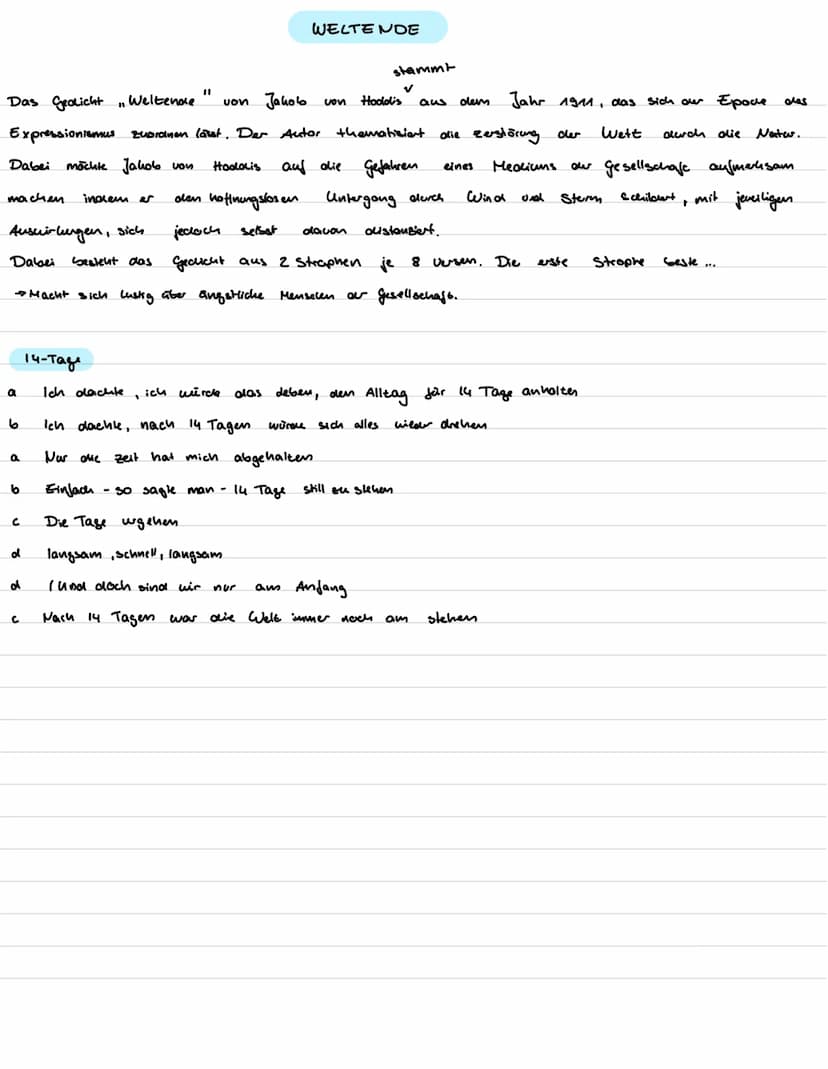 WELTENDE
stammt
Das Gedicht „Weltende" von Jakob von Hoddis aus dem Jahr 1911, das sich der Epoche des
Expressionismus zuordnen lässt. Der Autor thematisiert die Zerstörung der Welt durch die Natur.
Dabei möchte Jakob von Hoddis auf die Gefahren eines Mediums der Gesellschaft aufmerksam
machen indem er den hoffnungslosen Untergang durch Wind und Sturm schildert, mit jeweiligen
Auswirkungen, sich jedoch selbst davon distanziert.
Dabei besteht das Gedicht aus 2 Strophen je 8 Versen. Die erste Strophe beste...
→ Macht sich lustig über ängstliche Menschen der Gesellschaft.
14-Tage
a Ich dachte, ich würde das Leben, den Alltag für 14 Tage anhalten
b Ich dachte, nach 14 Tagen würde sich alles wieder drehen
a Nur die Zeit hat mich abgehalten
b Einfach - so sagte man - 14 Tage still zu stehen
c Die Tage vergehen
d langsam, schnell, langsam
d Und doch sind wir nur am Anfang
c Nach 14 Tagen war die Welt immer noch am stehen